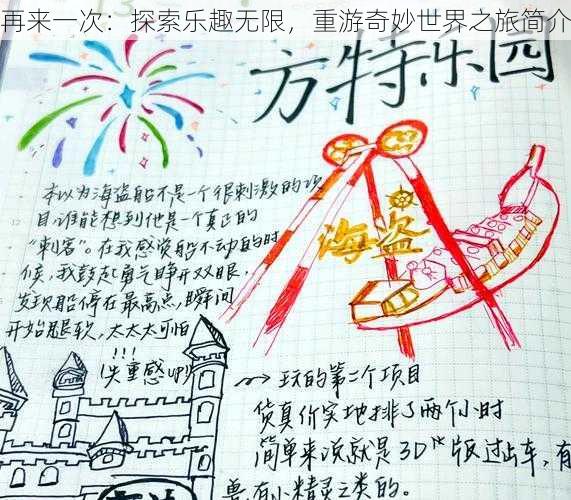 再来一次：探索乐趣无限，重游奇妙世界之旅简介
方特乐园
本以为海盗船不是一个很刺激的项
目谁能想到他是一个真正的
“刺客”。在我感觉船不动的时
候，我鼓起勇气睁开双眼，
发现船停在最高点，瞬间
开始腿软，太太太可怕
!!!
(失重感up)
海盗
→玩的第二个项目
货真价实地排了两个小时
简单来说就是3D版过山车，有
怪兽有小精灵之类的。